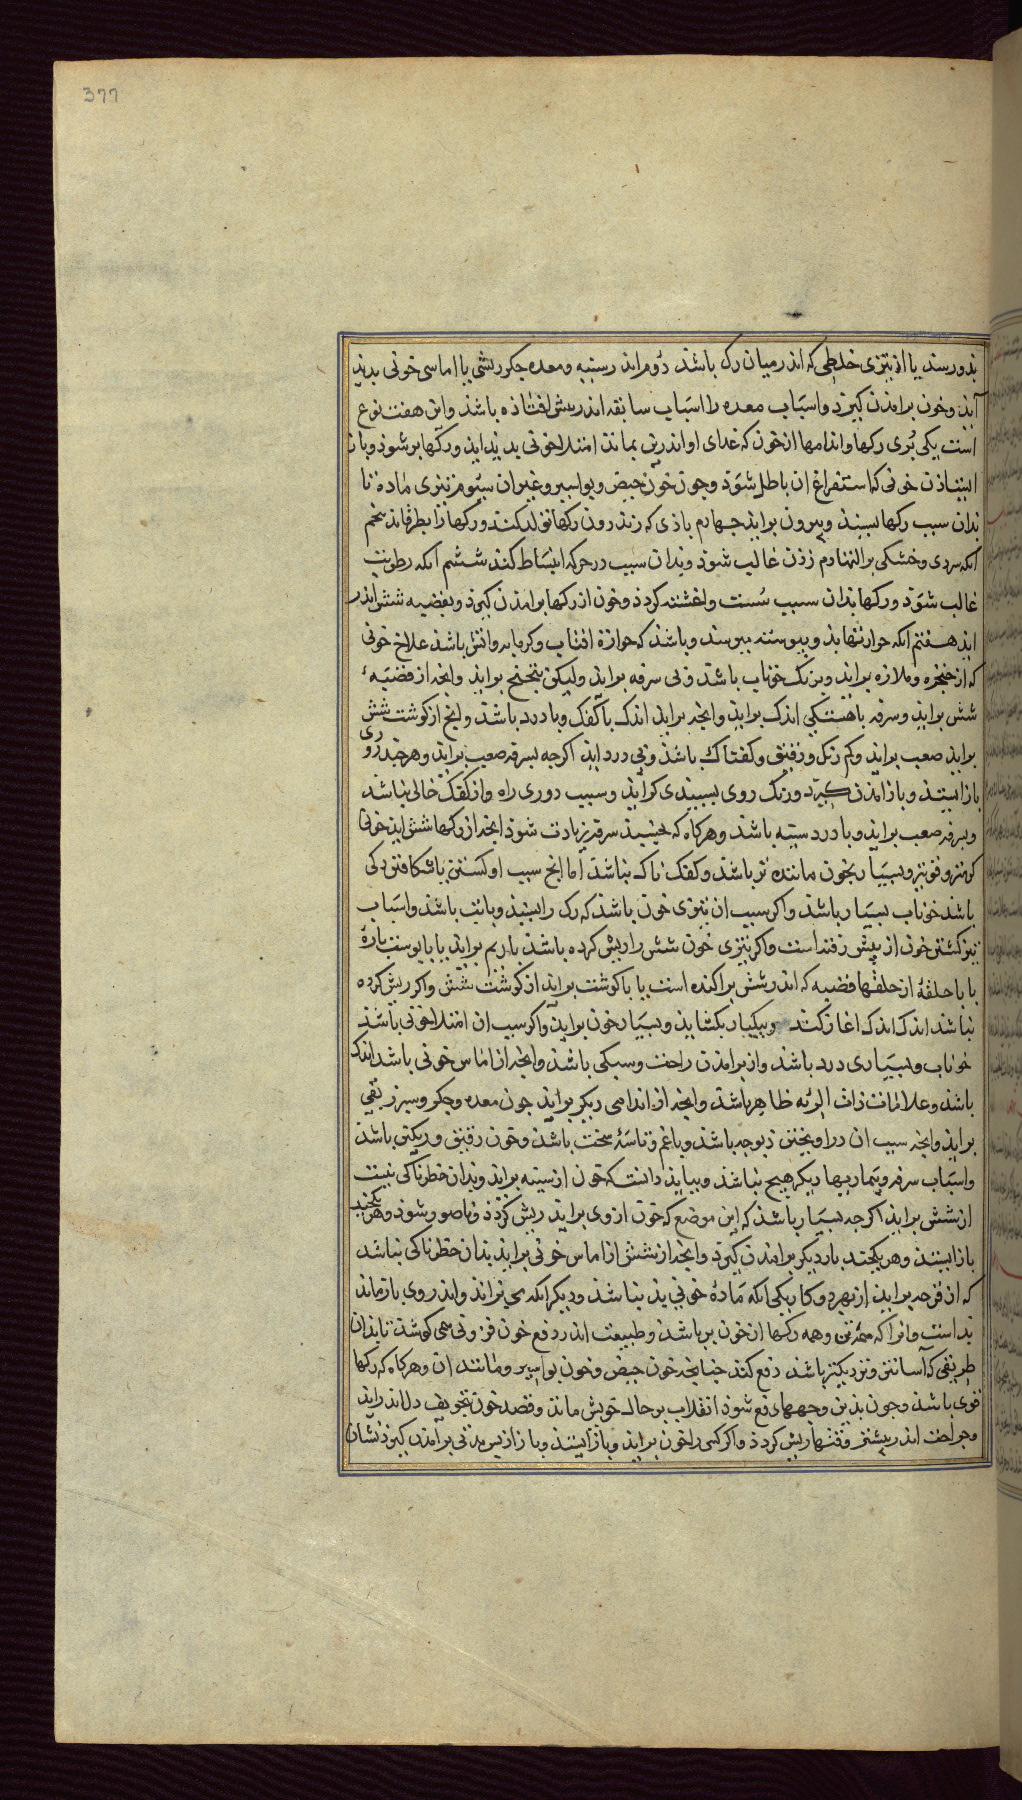 377
بذو رسد یا از تیزی خلطی که اندر میان رک باشد دوم اندر سینه و معده جکر ریشی یا اماسی خونی بدید
آید و خون برامدن کیرد و اسباب معده را اسباب سابقه اندر پیش افتاذه باشد و این هفت نوع
است یکی پری رکها و اندامها از خون که غذای او اندر تن بماند امتلا خونی بدید اید و رکها پر شود و باز
ایستاذن خونی که استفراغ ان باطل شود و چون خون حیض و بواسیر و غیر ان سیوم تیزی ماده تا
بدان سبب رکها بسیند و بیرون براید جهارم باذی که اندرون رکها تولد کند و رکها را بطرقاند پنجم
انکه سردی و خشکی بر التها دم زدن غالب شود و بدان سبب در حرکه انبساط کند ششم انکه رطوبت
غالب شود و رکها بدان سبب سست و اغشته کردذ و خون از رکها برامدن کیرد و بقضیه شش اندر
اید هفتم انکه حرارتها بذو پیوسته میرسد و باشد که حرارة افتاب و کرمابه و اتش باشد علاج خونی
که از حنجره و ملازه براید و برنک خوناب باشد و بی سرفه براید و لیکن بتنحنح براید و انجه از قضیهٔ
شش براید و سرفه باهستکی اندک براید و انجه براید اندک با کفک و با درد باشد و انج از کوشت شش
براید صعب براید و کم رنک و رقیق و کفناک باشد و بی درد اید اکرجه بسرفه صعب براید و هرجند روی
باز ایستد و باز امدن کیرد و رنک روی بسپیدی کراید و سبب دوری راه و از کفک خالی نباشد
و بسرفه صعب براید و با درد سینه باشد و هرکاه که بجنبد سرفه زیادت شود انجه از رکهاء شش اید خونی
کرمتر و قویتر و بسیار بخون ماننده تر باشد و کفک ناک نباشد اما انج سبب او کسستن یا شکافتن رکی
باشد خوناب بسیار باشد و اکر سبب ان تیزی خون باشد که رک را ببرد و یا تب باشد و اسباب
تیز کشتن خون از پیش رفته است و اکر تیزی خون شش را ریش کرده باشد با ریم براید یا با پوست پارهٔ
یا با حلقهٔ از حلقهاء قضیه که اندر شش پراکنده است یا با کوشت براید از کوشت شش و اکر ریش کرده
نباشد اندک اندک اغاز کند و بیکبار بکشاید و بسیار خون براید و اکر سبب ان امتلا خونی باشد
خوناب و بسیاری درد باشد و از برامدن راحت و سبکی باشد و انجه از اماس خونی باشد اندک
باشد و علامات ذات الریه ظاهر باشد و انجه از اندامی دیکر براید جون معده و جکر و سپرز بقی
براید و انجه سبب ان دراویختن دیوجه باشد و با غم و تاسهٔ سخت باشد و خون رقیق و ریکین باشد
و اسباب سرفه و بیماریها دیکر هیچ نباشد و بباید دانست که خون از سینه براید و بدان خطرناکی نیست
از شش براید اکرجه بسیار باشد که این موضع که خون از وی براید ریش کردذ و ناصور شود و هر یکجند
باز ایستد و هر یکجند بار دیکر برامدن کیرد و انجه از شش از اماس خونی براید بدان خطرناکی نباشد
که از قرحه براید از بهر دو کار یکی انکه مادهٔ خونی بد نباشد و دیکر انکه می تراند و اندر وی باز نماند
بد است و انرا که همه تن و همه رکها از خون پر باشد و طبیعت اندر دفع خون فزونی می کوشد تا بدان
طریقی که آسانتر و نزدیکتر باشد دفع کند جنانجه خون حیض و خون بواسیر و مانند ان و هرکاه که رکها
قوی باشد و جون بذین وجهها دفع شود انقلاب بر حال خویش ماند و قصد خون تجویف دل اندر اید
و جراحت اندر بیشتر وقتها ریش کردذ و اکر کسی را خون براید و باز ایستد و باز از پس مدتی برآمدن کیرذ نشان